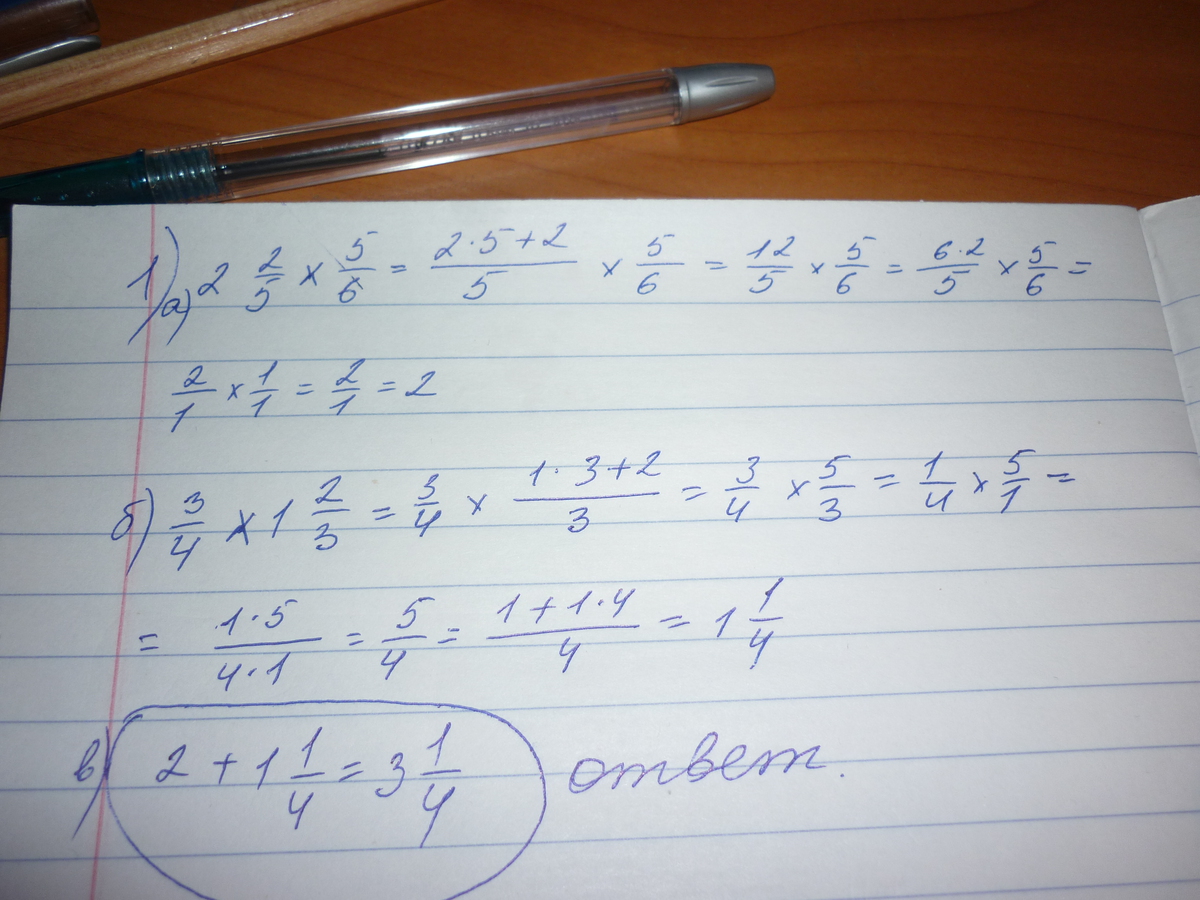 1) а) 2 2/5 × 5/6 = (2·5+2)/5 × 5/6 = 12/5 × 5/6 = (6·2)/5 × 5/6 =
2/1 × 1/1 = 2/1 = 2
б) 3/4 × 1 2/3 = 3/4 × (1·3+2)/3 = 3/4 × 5/3 = 1/4 × 5/1 =
= (1·5)/(4·1) = 5/4 = (1+1·4)/4 = 1 1/4
в) 2 + 1 1/4 = 3 1/4 ответ.